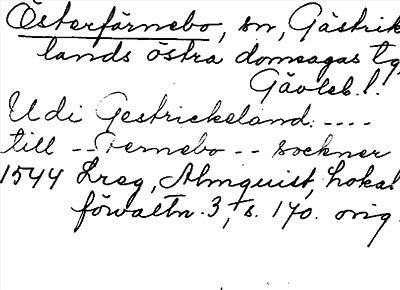 Österfärnebo, sn, Gästrik
lands östra domsagas tg
Gävleb. l.
Udi Gestrickeland. ----
till -- Fernebo -- sockner
1544 Dreg, Almquist, Lokal
förvaltn. 3, s. 170. orig.